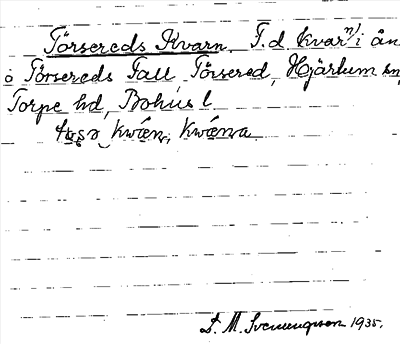 Törsereds Kvarn. F.d. kvarn i ån
o Törsereds Fall Törsered, Hjärtum sn,
Torpe hd, Bohus l.
kwæn, kwæna
D. M. Svenungsson 1935.